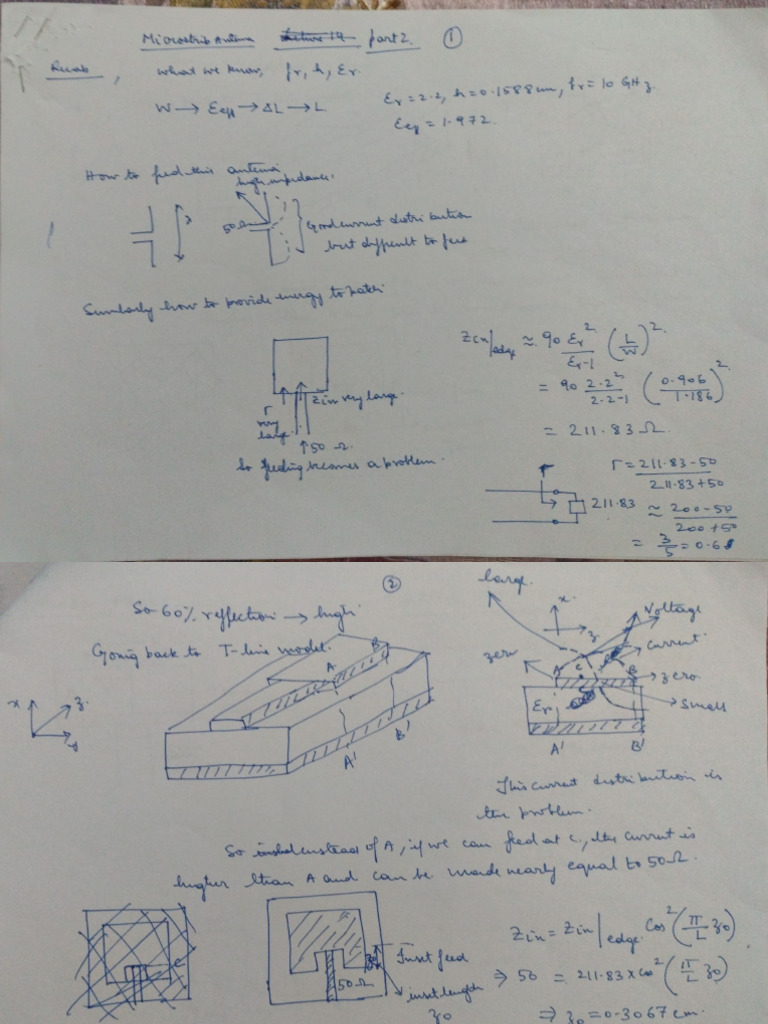 Microstrip Antenna Lecture 19 part 2. ①
Recap, what we know, fr, h, Er.
W → Eeff → ΔL → L
Er = 2.2, h = 0.1588 cm, fr = 10 GHz.
Eeff = 1.972.
How to feed this antenna
high impedance.
50Ω
λ
Good current distribution
but difficult to feed
Similarly how to provide energy to patch.
Γ very large.
Zin very large.
↑ 50 Ω.
So feeding becomes a problem.
Zin|edge ≈ 90 Er²/(Er-1) (L/W)².
= 90 2.2²/(2.2-1) (0.906/1.186)²
= 211.83 Ω.
Γ
211.83
Γ = (211.83-50)/(211.83+50)
≈ (200-50)/(200+50)
= 3/5 = 0.6
②
So 60% reflection → high.
Going back to T-line model.
x z y
A B
A' B'
large.
x
z
Voltage
Current
zero
A C B
zero
Er
small
A' B'
This current distribution is
the problem.
So instead of A, if we can feed at C, the current is
higher than A and can be made nearly equal to 50Ω.
C
50Ω
z0
Inset feed
inset length
z0
Zin = Zin|edge cos²(π/L z0)
⇒ 50 = 211.83 x cos²(π/L z0)
⇒ z0 = 0.3067 cm.